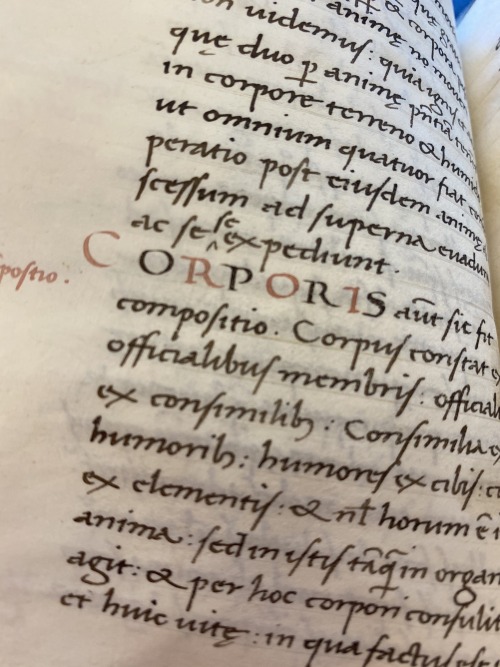 non uidemus: quia ignis
quę duo ꝑ animę pn̄tiā
in corpore terreno & humi
ut omnium quatuor fiat
peratio post eiusdem animę
scessum ad superna euadunt
ac sese expediunt.
postio.
CORPORIS aūt sic fit
compositio. Corpus constat ex
officialibus membris: officialia
ex consimilibꝫ: Consimilia ex
humoribꝫ: humores ex cibis:
ex elementis: & nł horum ē
anima: sed in istis tāꝗ̄ in organ
agit: & per hoc corpori consulit
et huic uitę: in qua factus